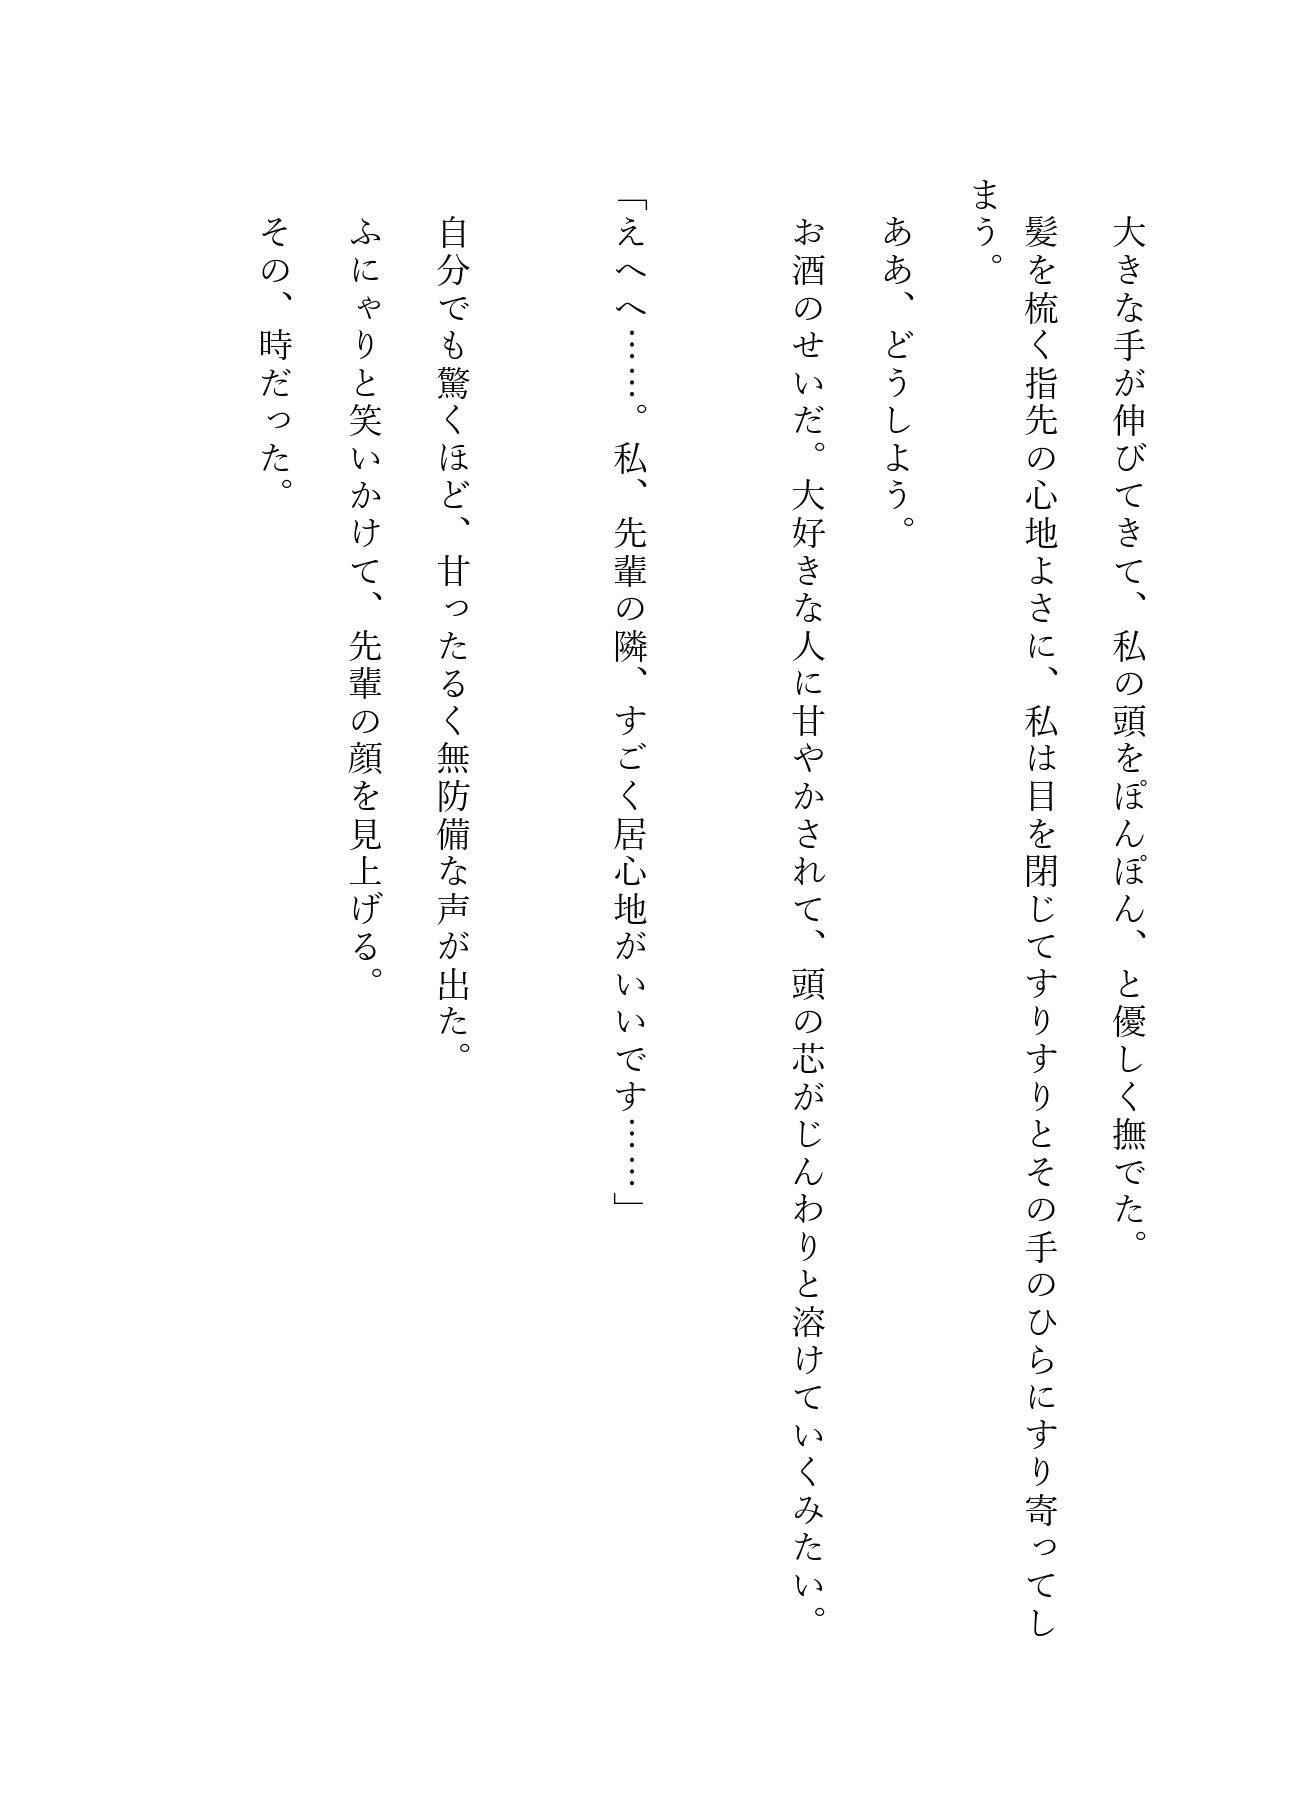 大きな手が伸びてきて、私の頭をぽんぽん、と優しく撫でた。
髪を梳く指先の心地よさに、私は目を閉じてすりすりとその手のひらにすり寄ってし
まう。
ああ、どうしよう。
お酒のせいだ。大好きな人に甘やかされて、頭の芯がじんわりと溶けていくみたい。
「えへへ……。私、先輩の隣、すごく居心地がいいです……」
自分でも驚くほど、甘ったるく無防備な声が出た。
ふにゃりと笑いかけて、先輩の顔を見上げる。
その、時だった。